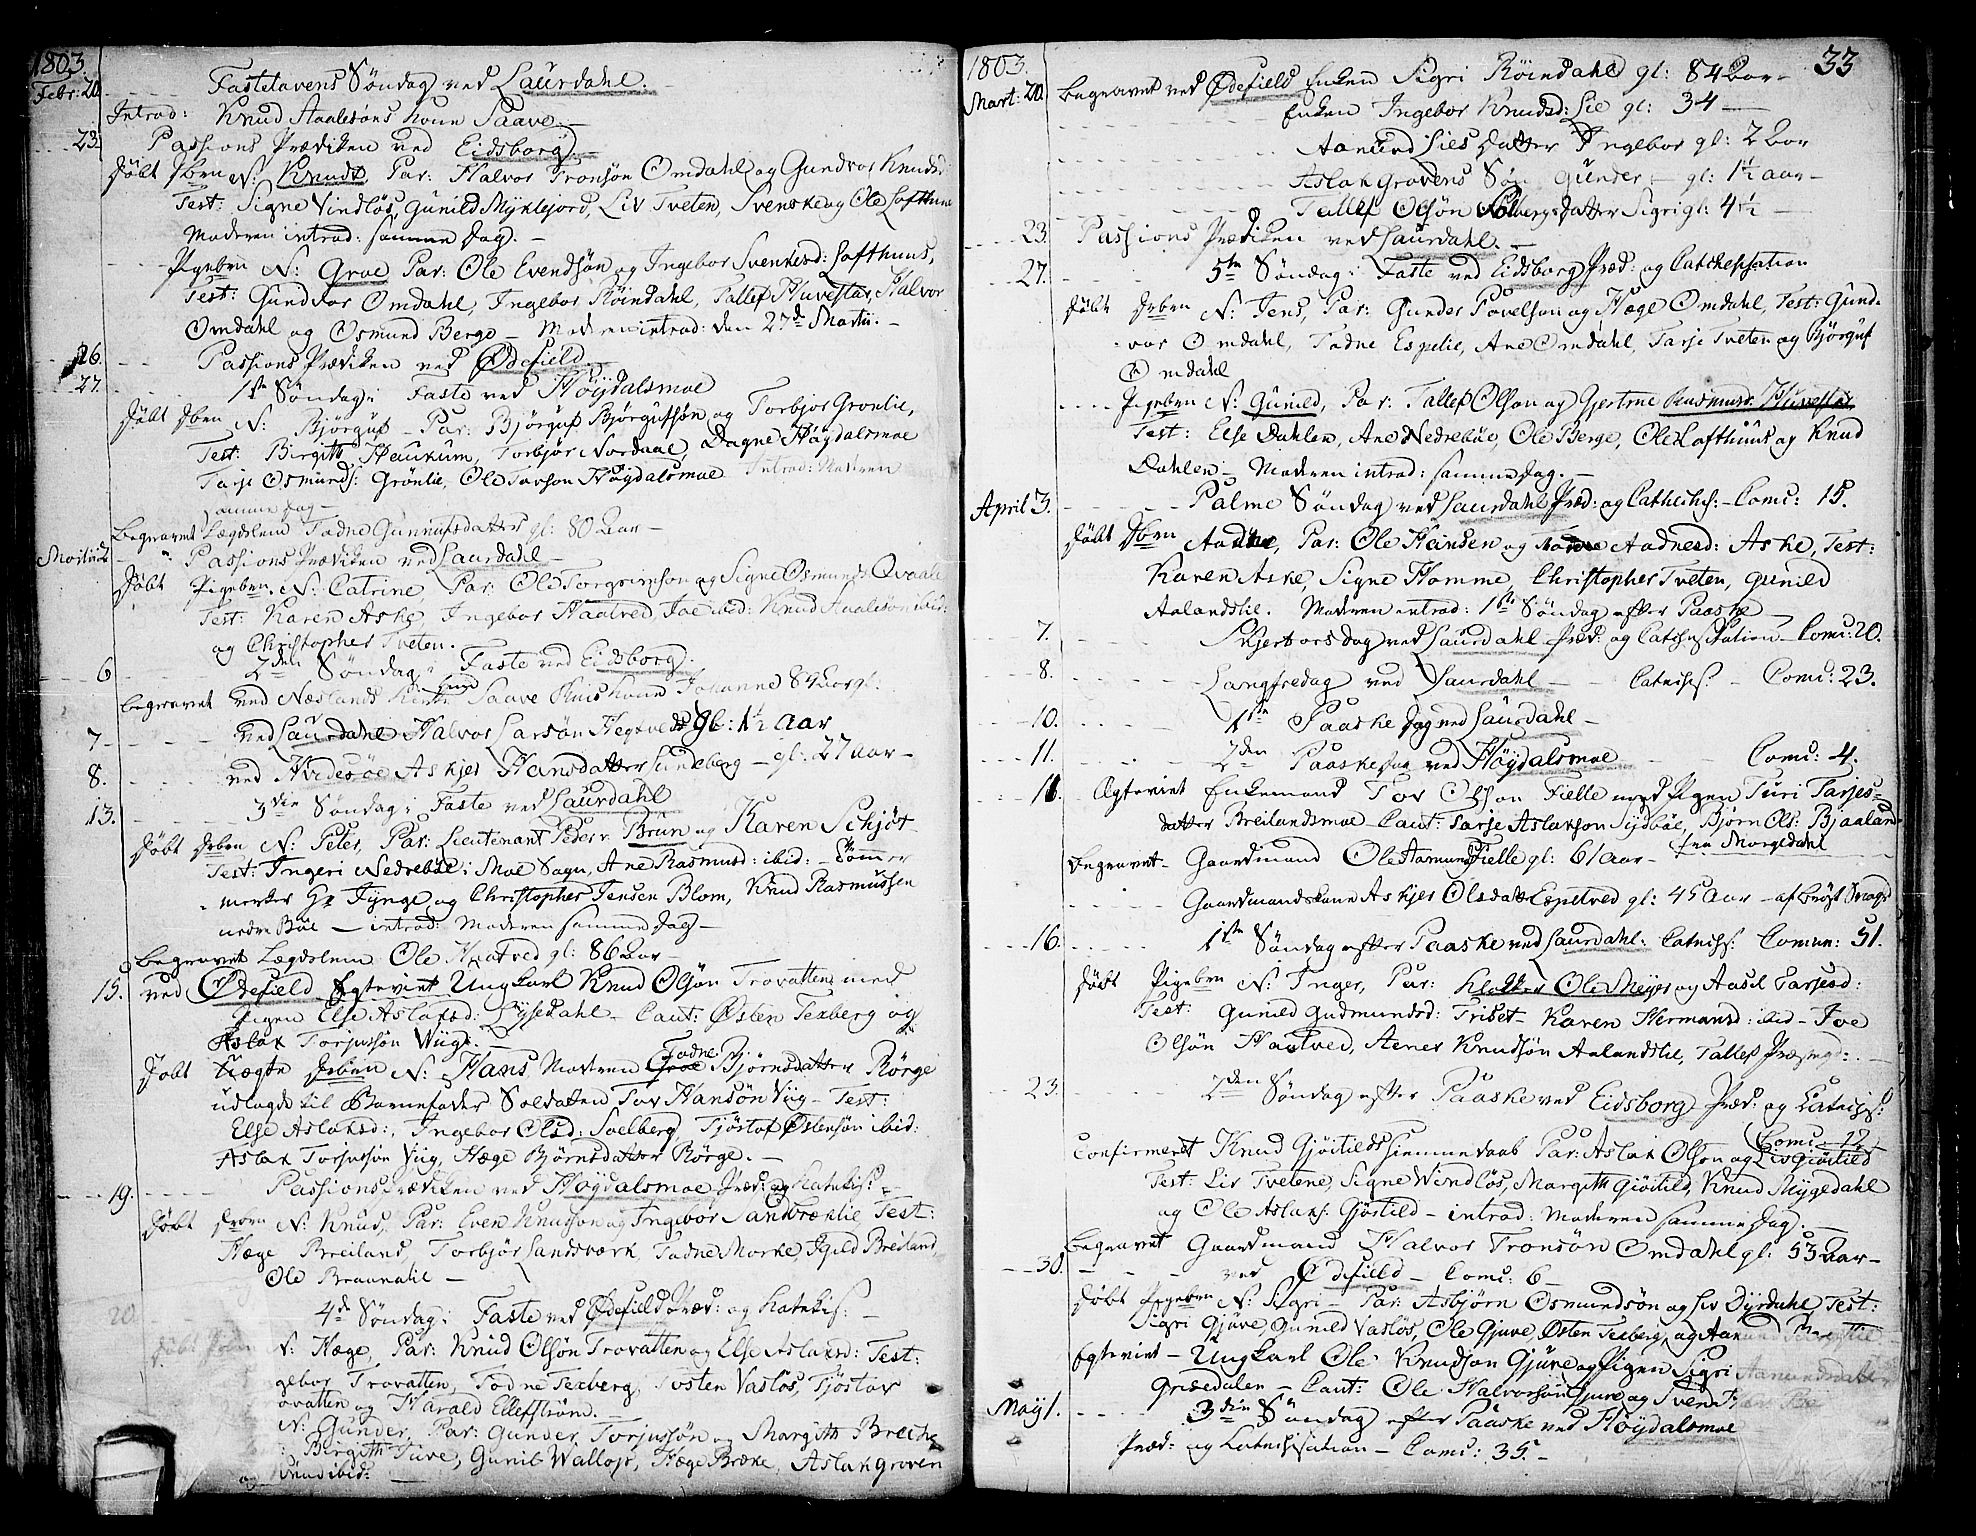 1803.
Febr: 20 Fastelavens Söndag ved Laurdahl.
Introd: Knud Aaalesöns Kone Saave.
23. Passions Prædiken ved Eidsborg.
Döbt Dbrn N: Knudt, Par: Halvor Tronsön Omdahl og Gundvor Knudsd
Test: Signe Vindlös, Gunild Myklejord, Liv Tveten, Svenske og Ole Lofthuus
Moderen introd: samme Dag.
Pigebrn N: Groe Par: Ole Evendsön og Ingebor Svenkesd: Lofthuus,
Test: Gundvor Omdahl, Ingebor Röindahl, Tallef Huvestar, Halvor
Omdahl og Osmund Berge – Moderen introd: den 27de Martii.
26. Passions Prædiken ved Ødefield.
27. 1ste Söndag i Faste ved Höydalsmoe
Döbt Dbrn N: Björguf – Par: Björguf Björgufssön og Torbjor Gronlie,
Test: Birgith Haukum, Torbjör Nordaae, Dagne Höydalsmoe
Tarje Osmunds: Grönlie, Ole Torson Höydalsmoe Introd: Moderen
samme Dag –
Begravet Lægdslem Todne Gunnufsdatter gl: 80 Aar –
Passions Prædiken ved Laurdahl –
Döbt Pigebrn. N: Catrine Par: Ole Torgrimson og Signe Osmunds Qvaale
Test: Karen Aske, Ingebor Haatved, Joe ibid: Knud Aaaleson ibid:
og Christopher Tveten.
6 2den Söndag i Faste ved Eidsborg.
begravet ved Næslands Kirke Saave Huuskone Johanne 84 Aar gl:
7 – ved Laurdahl Halvor Larsön Hegtvedt gl: 1½ Aar
8. ved Hvidesöe Askjer Hansdatter Sundberg – gl: 27 aar –
13. 3die Söndag i Faste ved Laurdahl
Döbt Drbrn N: Peter, Par: Lieutenant Peder v. Brun og Karen Schjöt
Test: Ingeri Nedreböe i Moe Sogn, Ane Rasmusd: ibid: – Tömmer
merker Hr Fynge og Christopher Jensen Blom, Knud Rasmussen
nedre Böe – introd: Moderen samme Dag –
Begravet Lægdslem Ole Haatved gl: 86 Aar –
15. ved Ødefield Egteviet Ungkarl Knud Olsön Trovatten med
Pigen Else Aslaksd: – Caut: Østen Texberg og
Aslak Torjussön Wiig.
Döbt Uægte Drbrn N: Hans Moderen Todne Björnsdatter Rörge
udlagde til Barnefader Soldatten Tor Hansön Viig – Test:
Else Aslaksd:, Ingebor Olsd: Soelberg Tjöstof Östensön ibid:
Aslak Torjussön Viig, Hæge Björnsdatter Rörge. –
19. Passions Prædiken ved Höydalsmoe Præd: og Katekis:
Döbt Drbrn N: Knud, Par: Even Knudson og Ingebor Sandvæklie, Test:
Hæge Breiland, Torbjör Sandsværk, Todne Morke, Igild Breiland,
Ole Braunalie –
20 4de Söndag i Faste ved Ødefield Præd: og Katekis:
N: Hæge, Par: Knud Olsön Trovatten og Else Aslaksd: Test:
gebor Trovatten, Todne Texberg, Torsten Vaslös, Tjöstov
ovatten og Harald Ellefström.
N: Gunder, Par: Gunder Torjussön og Margith Breche
: Birgith Tuve, Gunil Wallop, Hæge Bræke, Aslak Groven
og Knud ibid: –
1803. 33
Mart: 20. Begravet ved Ødefield Enken Sigri Röindahl gl: 84 Aar –
Enken Ingebor Knudsd: Lie gl: 34 –
Aamund Lies Datter Ingebor gl: 2 Aar
Aslak Grovens Sön Gunder – gl: 1½ aar –
Tallef Olsön Solbergs Datter Sigri gl: 4½ –
23. Passions Prædiken ved Laurdahl. –
27. 5te Söndag i Faste ved Eidsborg Præd: og Catekesation
Döbt Drbrn N: Jens, Par: Gunder Povelson og Hæge Omdahl, Test: Gund-
vor Omdahl, Todne Espelie, Ane Omdahl, Tarje Tveten og Björguf
Omdahl
Pigebrn N: Gunild, Par: Tallef Olson og Gjertrue Rasmusd: Huvestad
Test: Else Dahlen, Ane Nedreböe, Ole Berge, Ole Lofthuus og Knud
Dahlen – Moderen introd: samme Dag. –
April 3. Palme Söndag ved Laurdahl Præd: og Catekis: – Comu: 15.
Döbt Dbrn Aadne, Par: Ole Hansen og Aadnesd: Aske, Test:
Karen Aske, Signe Homme, Christopher Tveten, Gunild
Aalandslie. Moderen introd: 1ste Söndag efter Paaske
7. Skjertorsdag ved Laurdahl Præd: og Catekisation – Comu: 20.
8. Langfredag ved Laurdahl – Catekis: – Comu: 23.
10. 1ste Paaske Dag ved Laurdahl –
11. 2den Paaskedag ved Höydalsmoe – Comu: 4.
11. Ægteviet Enkemand Tov Olson Fielle med Pigen Turi Tarjes-
datter Breilandsmoe Caut: Tarje Aslakson Sydböe, Björn Ols: Bjaaland
fra Morgedahl
Begravet – Gaardmand Ole Aamunds Fielle gl: 61 Aar –
Gaardmandskone Askjer Olsdatter Espetved gl: 45 Aar –
16. 1ste Söndag efter Paaske ved Laurdahl. Catekis: Comun: 51.
Döbt Pigebrn N: Inger, Par: Klokker Ole Meyer og Aasil Tarjesd:
Test: Gunild Gudmundsd: Triset – Karen Hermansd: ibid – Joe
Olsön Haatved, Aener Knudsön Aalandslie, Tallef Præstegd:. –
23. 2den Söndag efter Paaske ved Eidsborg Præd: og Katekis:
Comu: 12
Confirmeret Knud Gjöitilds Hjemmedaab Par: Aslak Olson og Liv Giöitild
Test: Liv Tvetene, Signe Windlös, Margith Giöitild, Knud Mygedahl
og Ole Aslaks: Gjöitild – introd: Moderen samme Dag. –
Begravet Gaardmand Halvor Tronsön Omdahl gl: 53 Aar –
30. ved Ødefield – Comu: 6 –
Döbt Pigebrn N: Sigri – Par: Asbjörn Osmundsön og Liv Dyrdahl Test:
Sigri Gjuve, Gunild Vaslös, Ole Gjuve, Østen Texberg, og
Egteviet – Ungkarl Ole Knudson Gjuve og Pigen Sigri Aamundsdatter
Grisedalen – Caut: Ole Halvorsön Gjuve og Svend
May 1. 3die Söndag efter Paaske ved Höydalsmoe
Præd: og Catechisation – Comu: 35. –